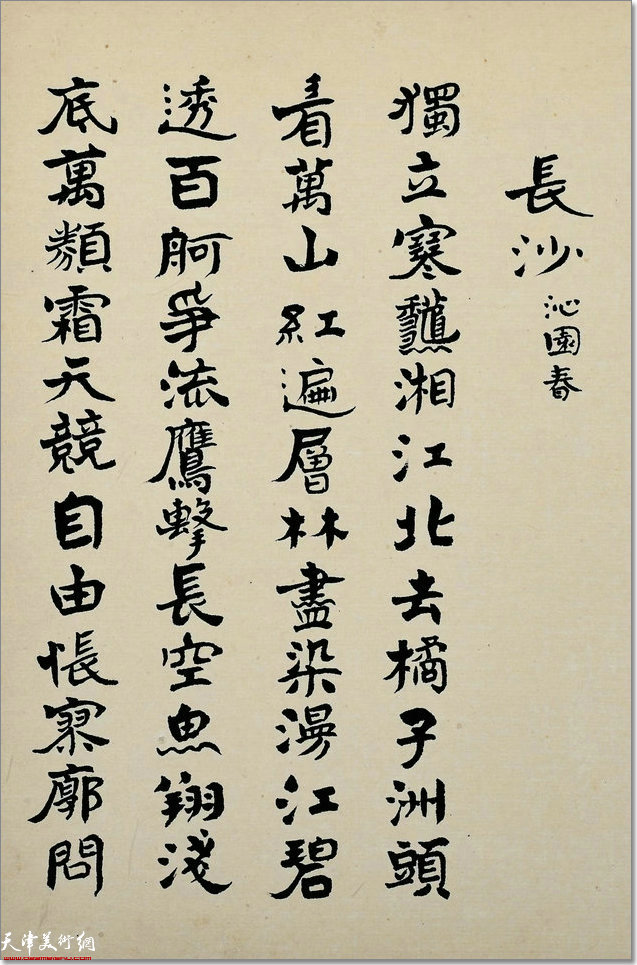 長沙
沁園春
獨立寒龝湘江北去橘子洲頭
看萬山紅遍層林盡染漫江碧
透百舸爭流鷹擊長空魚翔淺
底萬類霜天競自由悵寥廓問
天津美術網